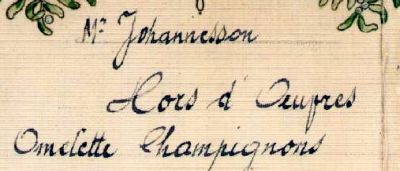 Mr Johannesson
Hors d' Oeupres
Omelette Champignons